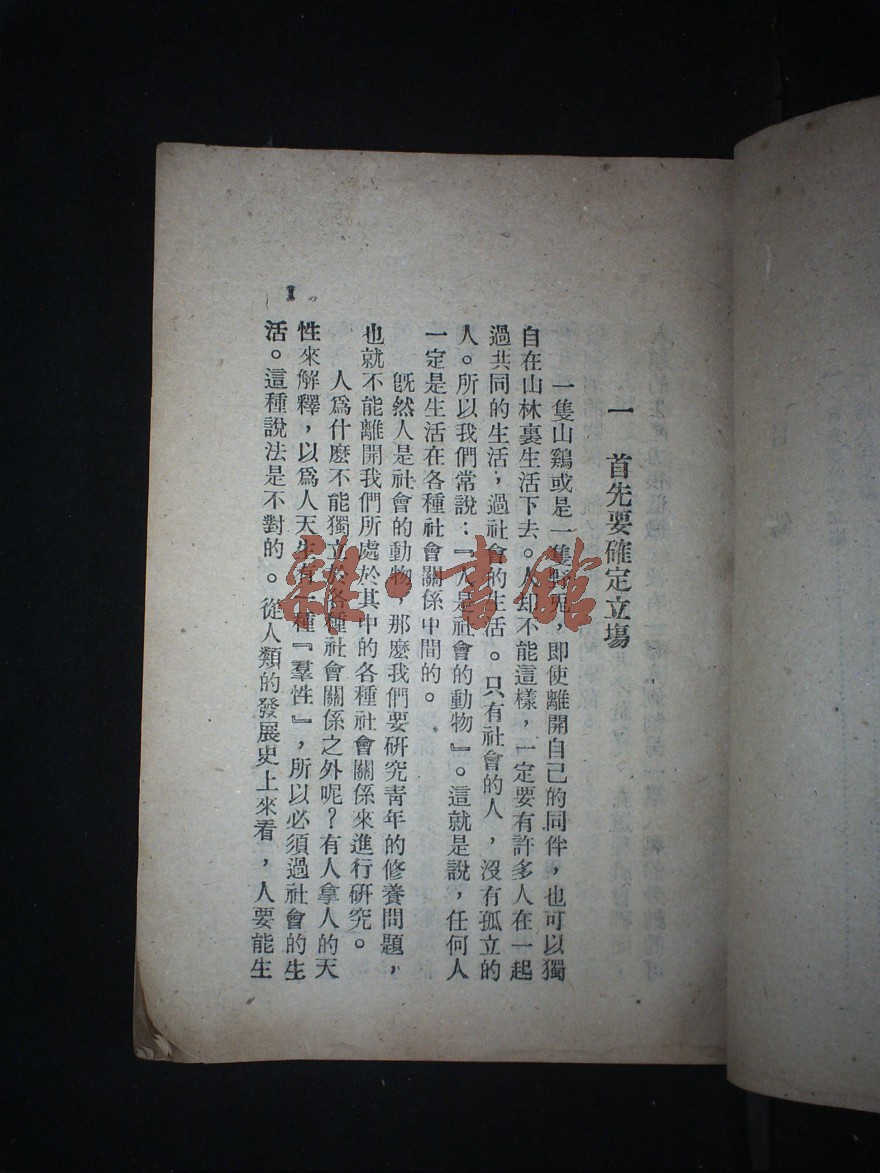 一　首先要確定立塲
一隻山鷄或是一隻野兎，即使離開自己的同伴，也可以獨
自在山林裏生活下去。人却不能這樣，一定要有許多人在一起
過共同的生活，過社會的生活。只有社會的人，沒有孤立的
人。所以我們常說：『人是社會的動物』。這就是說，任何人
一定是生活在各種社會關係中間的。
旣然人是社會的動物，那麽我們要硏究靑年的修養問題，
也就不能離開我們所處於其中的各種社會關係來進行硏究。
人爲什麽不能獨立於各種社會關係之外呢？有人拿人的天
性來解釋，以爲人天生有一種『羣性』，所以必須過社會的生
活。這種說法是不對的。從人類的發展史上來看，人要能生
1
雜·書館